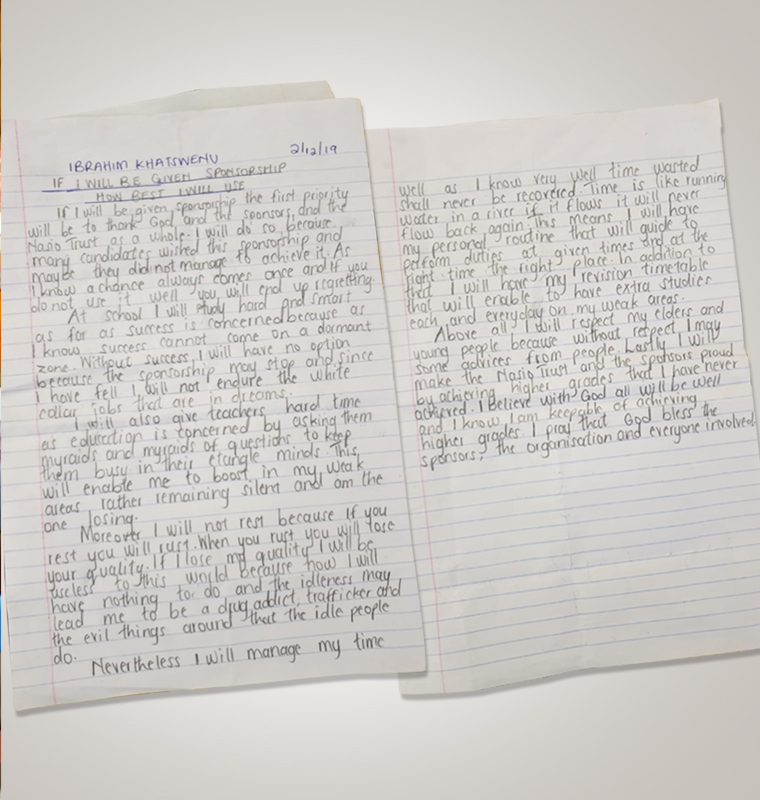 IBRAHIM KHATSWENU 2/12/19
IF I WILL BE GIVEN SPONSORSHIP
HOW BEST I WILL USE
If I will be given sponsorship the first priority
will be to thank God and the sponsors, and the
Nasio Trust as a whole. I will do so because
many candidates wished this sponsorship and
maybe they did not manage to achieve it. As
I know a chance always comes once and if you
do not use it well you will end up regretting.
At school I will study hard and smart
as for as success is concerned because as
I know success cannot come on a dormant
zone. Without success, I will have no option
because the sponsorship may stop and since
I have fell I will not endure the white
collar jobs that are in dreams.
I will also give teachers hard time
as education is concerned by asking them
myraids and myraids of questions to keep
them busy in their etangle minds. This
will enable me to boost in my weak
areas rather remaining silent and am the
one losing.
Moreover I will not rest because if you
rest you will rust. When you rust you will lose
your quality. If I lose my quality I will be
useless to this world because how I will
have nothing to do and the idleness may
lead me to be a drug addict, trafficker and
the evil things around that the idle people
do.
Nevertheless I will manage my time
well as I know very well time wasted
shall never be recovered. Time is like running
water in a river if it flows it will never
flow back again, this means I will have
my personal routine that will guide to
perform duties at given times and at the
right time the right place. In addition to
that I will have my revision timetable
that will enable to have extra studies
each and everyday on my weak areas.
Above all I will respect my elders and
young people because without respect I may
some advices from people. Lastly I will
make the Nasio Trust and the sponsors proud
by achieving higher grades that I have never
achieved. I believe with God all will be well
and I know I am keepable of achieving
higher grades. I pray that God bless the
sponsors, the organisation and everyone involved